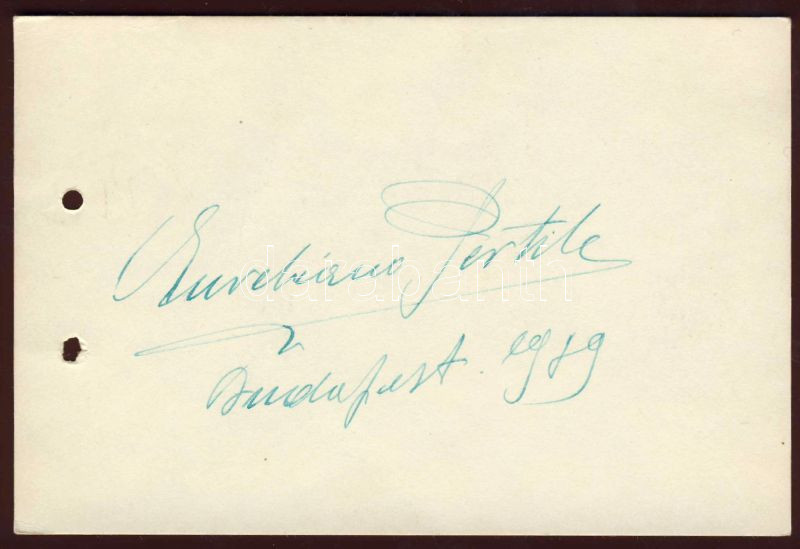 Aureliano Pertile
Budapest. 1939
darabanth